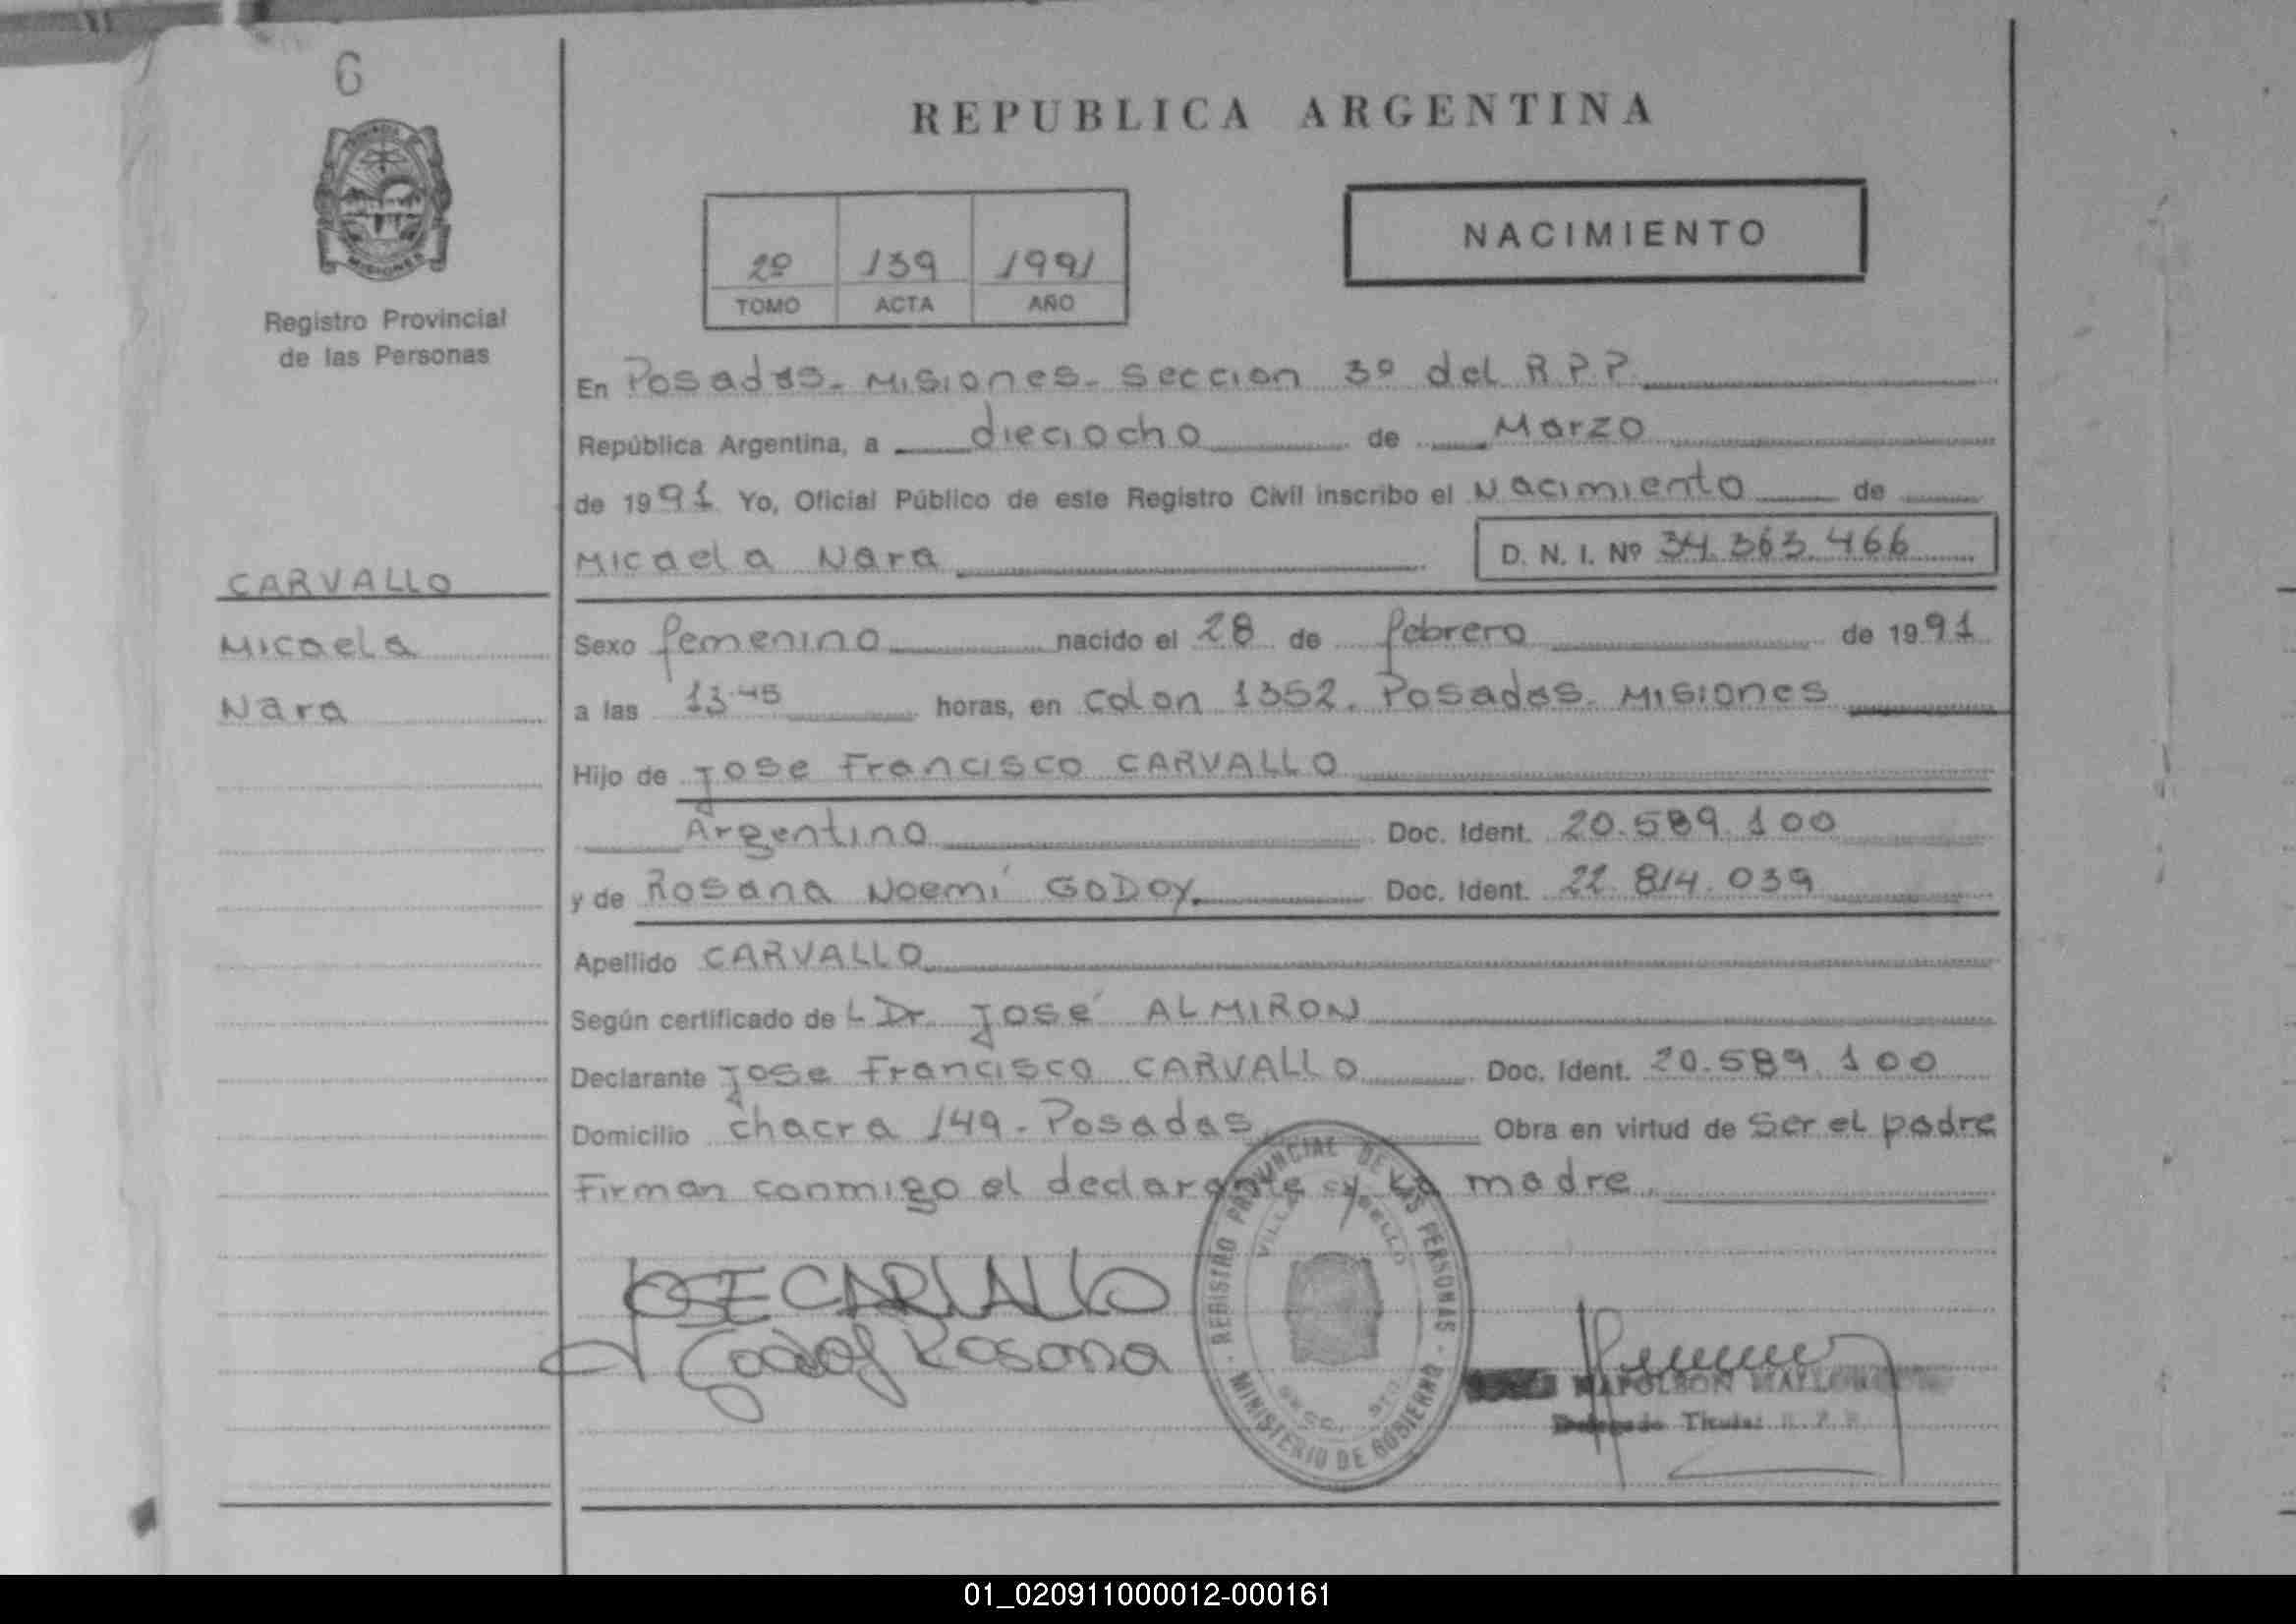 6
REPUBLICA ARGENTINA
NACIMIENTO
2º 139 1991
TOMO ACTA AÑO
MISIONES
Registro Provincial
de las Personas
En Posadas - Misiones - Seccion 3º del R.P.P.
República Argentina, a dieciocho de Marzo
de 1991 Yo, Oficial Público de este Registro Civil inscribo el Nacimiento de
Micaela Nara D. N. I. Nº 34.363.466
CARVALLO
Micaela
Nara
Sexo femenino nacido el 28 de febrero de 1991
a las 13.45 horas, en Colon 1352. Posadas. Misiones
Hijo de Jose Francisco CARVALLO
Argentino Doc. Ident. 20.589.100
y de Rosana Noemí GODOY Doc. Ident. 22.814.039
Apellido CARVALLO
Según certificado de L Dr. José ALMIRON
Declarante Jose Francisco CARVALLO Doc. Ident. 20.589.100
Domicilio chacra 149 - Posadas Obra en virtud de Ser el padre
Firman conmigo el declarante y la madre.
JOSE CARVALLO
Godoy Rosana
REGISTRO PROVINCIAL DE LAS PERSONAS
MINISTERIO DE GOBIERNO
VILLA
NAPOLEON
Delegado Titular R. P. P.
01_020911000012-000161